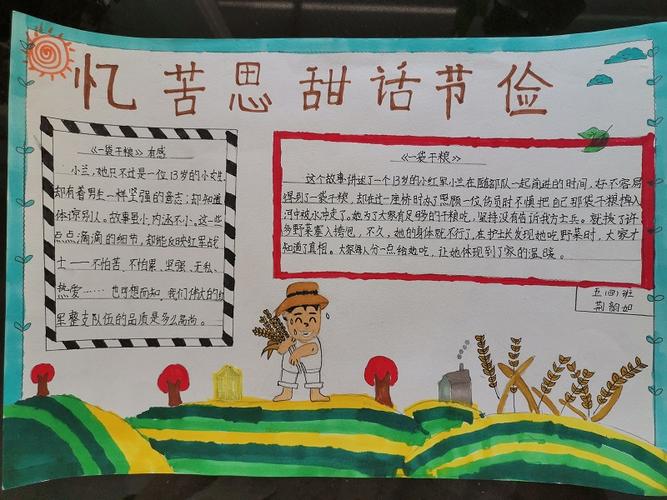 忆苦思甜话节俭
《一袋干粮》有感
小兰,她只不过是一位13岁的小女生
却有着男生一样坚强的意志;却知道
体谅别人。故事虽小,内涵不小。这些
点点滴滴的细节,却能反映红军战
士——不怕苦、不怕累、坚强、无私、
热爱……也可想而知,我们伟大的红
军整支队伍的品质是多么高尚。
《一袋干粮》
这个故事讲述了一个13岁的小红军小兰在随部队一起前进的时间,好不容易
得到了一袋干粮,却在过一座桥时为了照顾一位伤员时不慎把自己那袋干粮掉入
河中被水冲走了。她为了大家有足够的干粮吃,坚持没有告诉战友,就拔了许
多野菜塞入挎包,不久,她的身体就不行了,在护士长发现她吃野菜时,大家才
知道了真相。大家每人分一点给她吃,让她体现到了家的温暖。
五(四)班
荆韵如